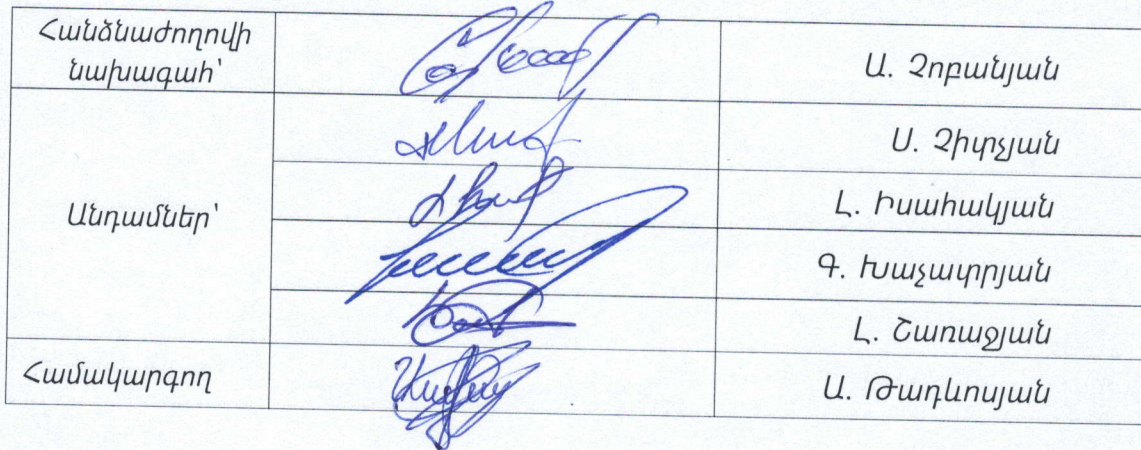 Հանձնաժողովի
նախագահ՝
Ա. Չոբանյան
Անդամներ՝
Ս. Չիտչյան
Լ. Իսահակյան
Գ. Խաչատրյան
Լ. Շառաջյան
Համակարգող
Ա. Թադևոսյան